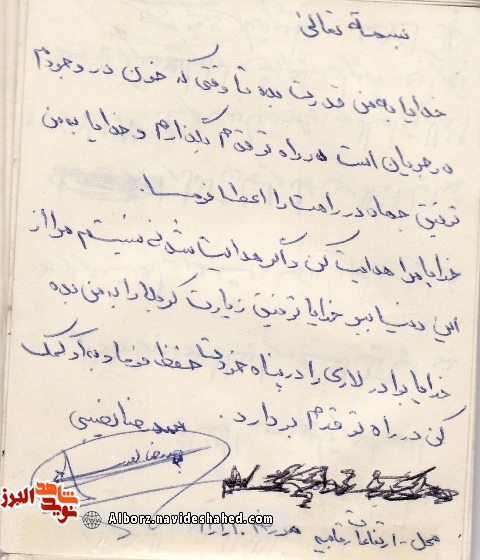 بسمه تعالی
خدایا به من قدرت بده تا وقتی که خون در وجودم
در جریان است در راه تو قدم بگذارم و خدایا به من
توفیق جهاد در راهت را اعطا بفرما.
خدایا مرا هدایت کن و اگر هدایت شدنی نیستم مرا از
این دنیا ببر خدایا توفیق زیارت کربلا را به من بده
خدایا برادر لاری را در پناه خودت حفظ فرما و به او کمک
کن در راه تو قدم بردارد.
محل - ارتفاعات
شاهد
نوید
البرز
Alborz.navideshahed.com